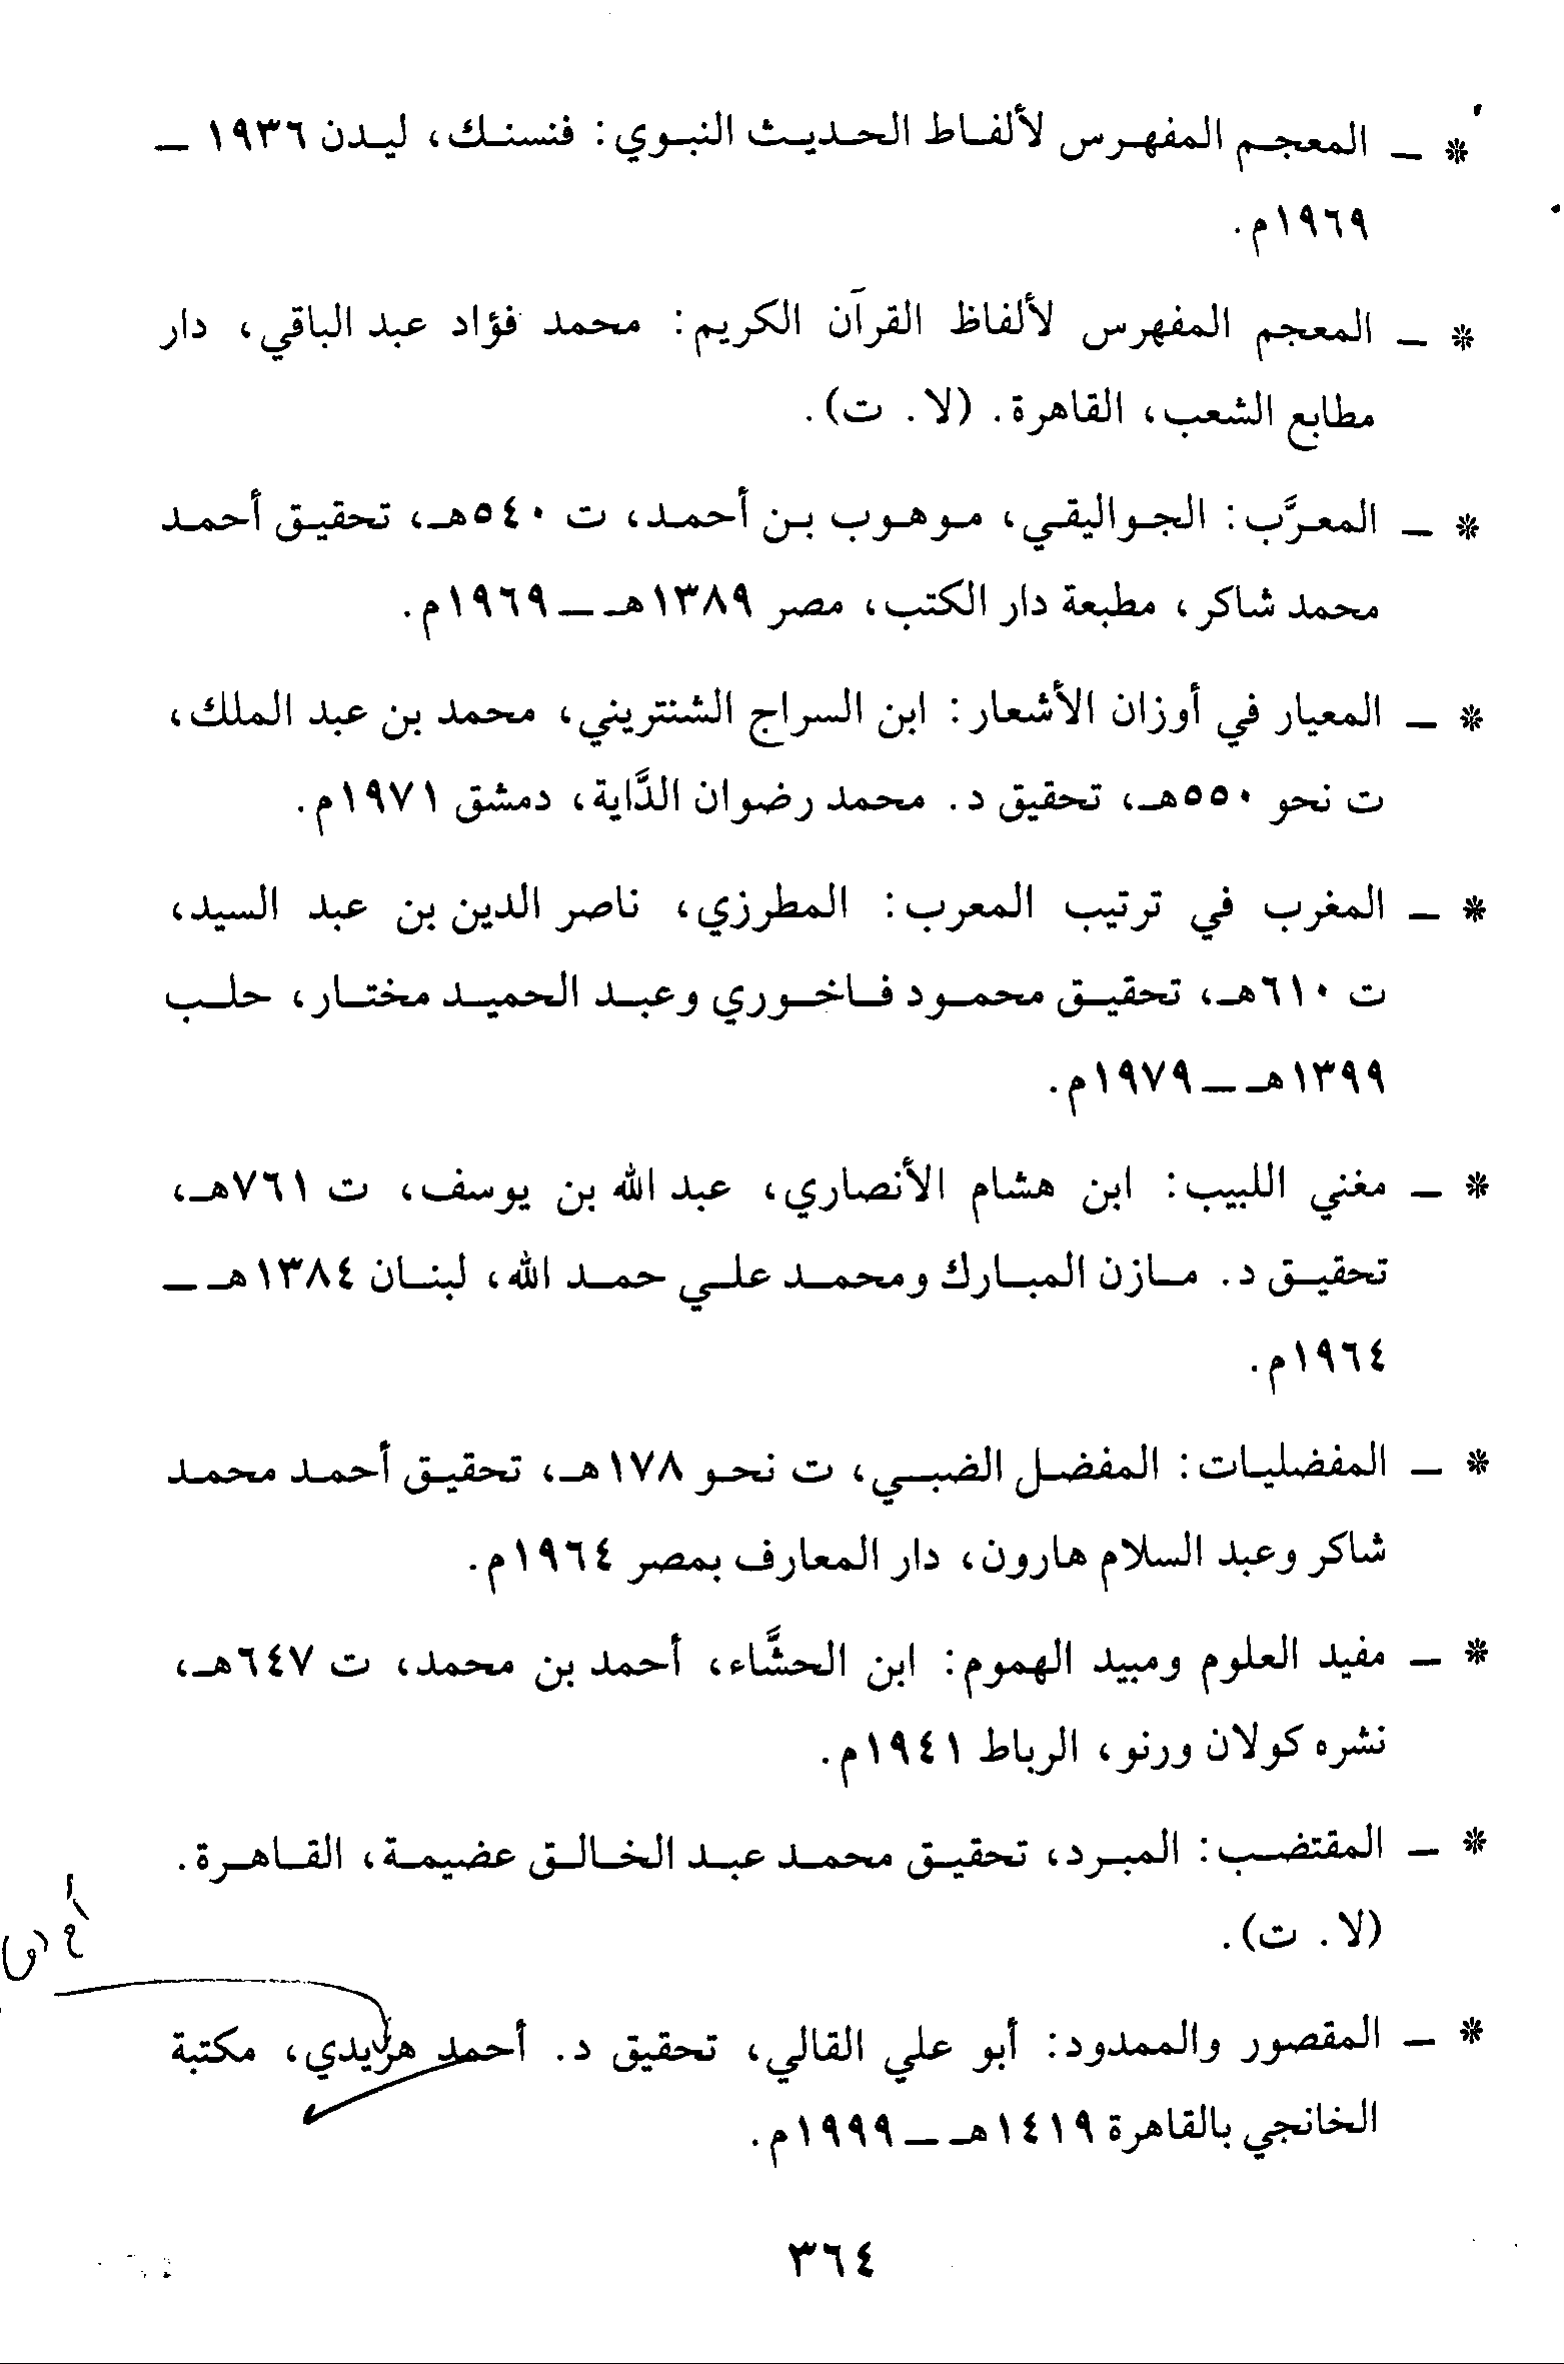 * ــ المعجم المفهرس لألفاط الحديث النبوي: فنسنك، ليدن ١٩٣٦ ــ
١٩٦٩م.
* ــ المعجم المفهرس لألفاظ القرآن الكريم: محمد فؤاد عبد الباقي، دار
مطابع الشعب، القاهرة. (لا. ت).
* ــ المعرَّب: الجواليقي، موهوب بن أحمد، ت ٥٤٠هـ، تحقيق أحمد
محمد شاكر، مطبعة دار الكتب، مصر ١٣٨٩هـ ــ ١٩٦٩م.
* ــ المعيار في أوزان الأشعار: ابن السراج الشنتريني، محمد بن عبد الملك،
ت نحو ٥٥٠هـ، تحقيق د. محمد رضوان الدَّاية، دمشق ١٩٧١م.
* ــ المغرب في ترتيب المعرب: المطرزي، ناصر الدين بن عبد السيد،
ت ٦١٠هـ، تحقيق محمود فاخوري وعبد الحميد مختار، حلب
١٣٩٩هـ ــ ١٩٧٩م.
* ــ مغني اللبيب: ابن هشام الأنصاري، عبد الله بن يوسف، ت ٧٦١هـ،
تحقيق د. مازن المبارك ومحمد علي حمد الله، لبنان ١٣٨٤هـ ــ
١٩٦٤م.
* ــ المفضليات: المفضل الضبي، ت نحو ١٧٨هـ، تحقيق أحمد محمد
شاكر وعبد السلام هارون، دار المعارف بمصر ١٩٦٤م.
* ــ مفيد العلوم ومبيد الهموم: ابن الحشَّاء، أحمد بن محمد، ت ٦٤٧هـ،
نشره كولان ورنو، الرباط ١٩٤١م.
* ــ المقتضب: المبرد، تحقيق محمد عبد الخالق عضيمة، القاهرة.
(لا. ت).
* ــ المقصور والممدود: أبو علي القالي، تحقيق د. أحمد هريدي، مكتبة
الخانجي بالقاهرة ١٤١٩هـ ــ ١٩٩٩م.
٣٦٤